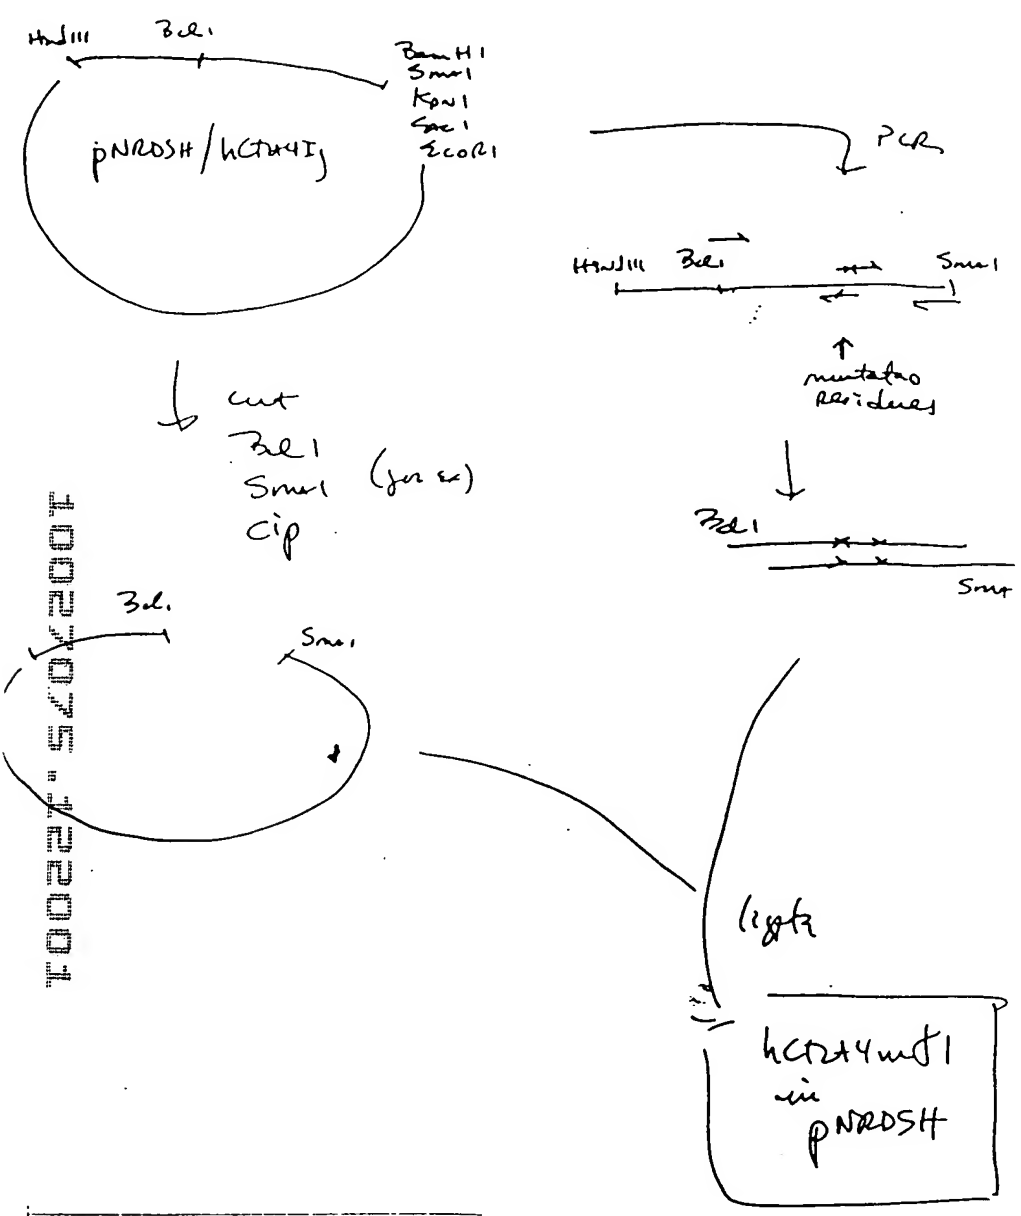 HindIII Bcl1
BamH1
Sma1
Kpn1
Sac1
EcoR1
pNRDSH/hCTLA4Ig
PCR
HindIII Bcl1 Sma1
residues
cut
Bcl1
Sma1 (for ex)
Cip
Bcl1
Sma
Bcl1
Sma1
10027075.122001
ligate
hCTLA4mt1
in
pNRDSH